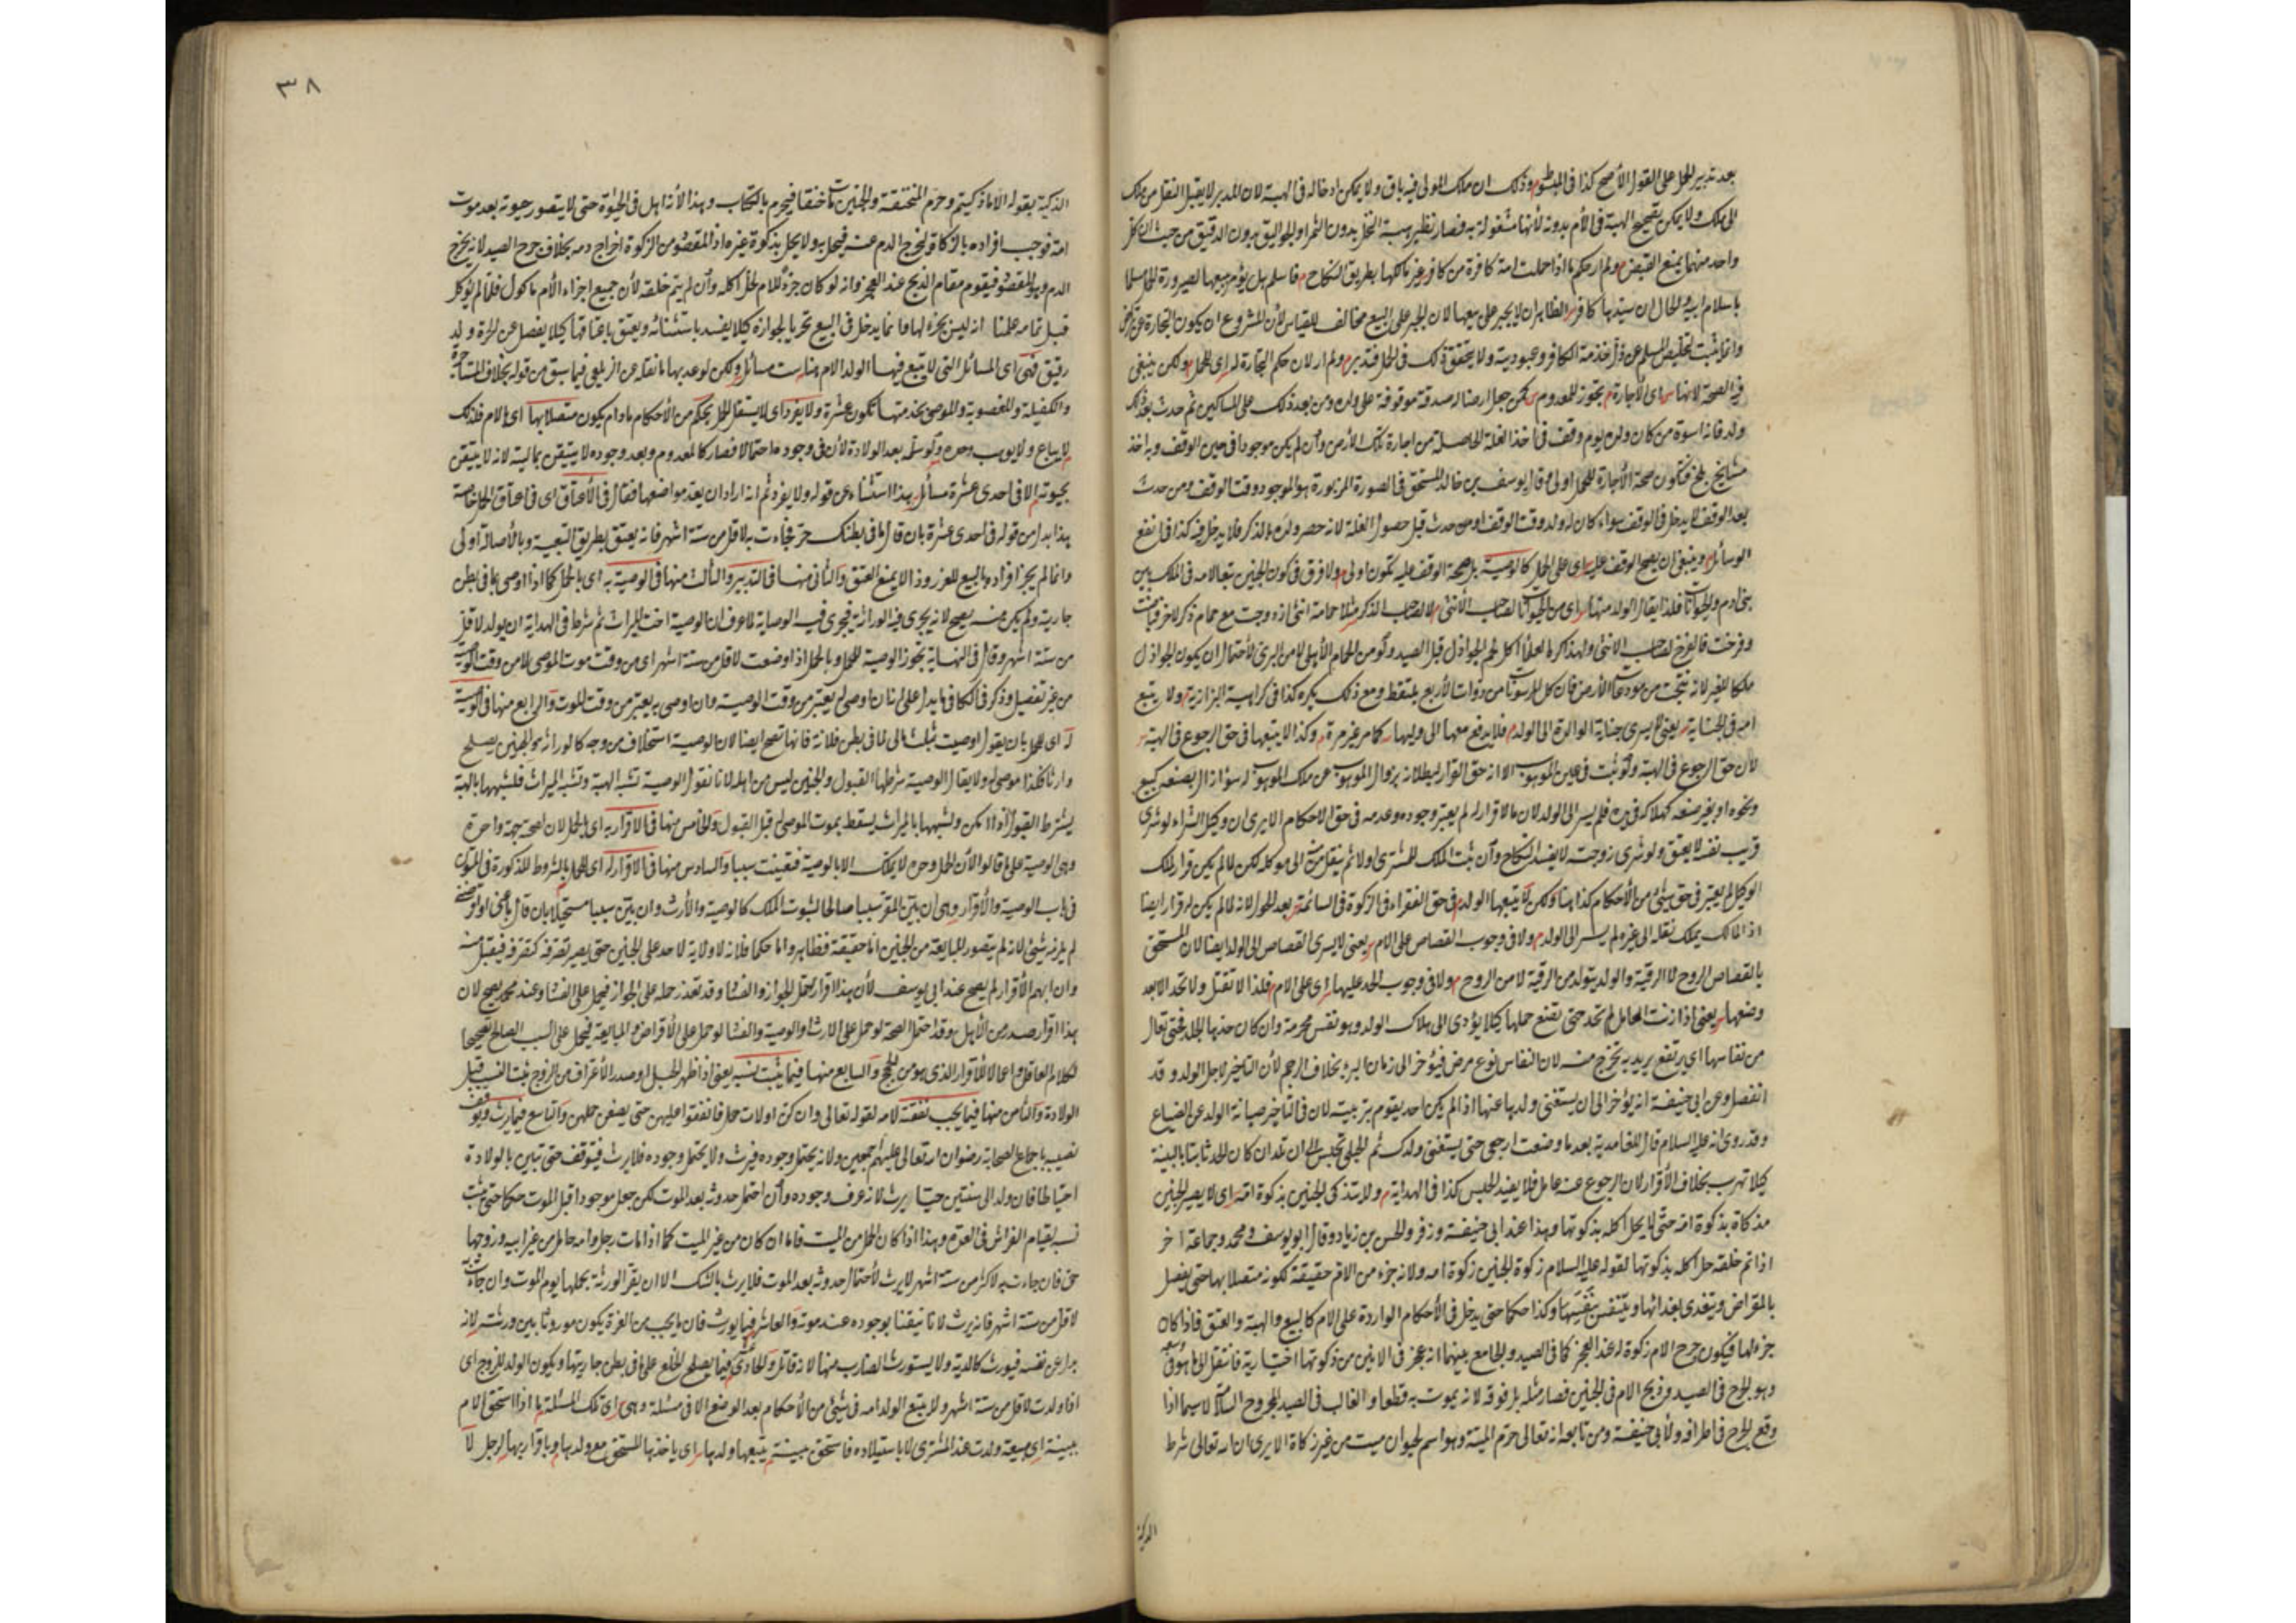 بعد تدبير الحمل على القول الأصح كذا في المبسوط وذلك ان ملك المولى فيه باق ولا يمكن ادخاله في الهبة لان المدبر لا يقبل النقل من ملك
الى ملك ولا يمكن تصحيح الهبة في الأم بدونه لأنها مشغولة به فصار نظير هبة النخل بدون الثمر او الجواليق بدون الدقيق من حيث ان كل
واحد منهما يمنع القبض ولم ار حكم ما اذا حملت امة كافرة من كافر غير مالكها بطريق النكاح فاسلم هل يؤمر ببيعها لصيرورة الحمل مسلما
باسلام ابيه والحال ان سيدها كافر الظاهر ان لا يجبر على بيعها لان الجبر على البيع مخالف للقياس لأن المشروع ان يكون التجارة عن تراض
وانما يثبت لتخليص المسلم عن ذل خدمة الكافر وعبوديته ولا يتحقق ذلك في الحمل فتدبر ولم ار لان حكم الاجارة له اى للحمل ولكن ينبغى
فيه الصحة لانها اى الأجارة تجوز للمعدوم كمن جعل ارضا له صدقة موقوفة على ولده ومن بعد ذلك على المساكين ثم حدث بعد ذلك
ولد فانه اسوة من كان ولده يوم وقف في اخذ الغلة الحاصلة من اجارة تلك الأرض وأن لم يكن موجودا في حين الوقف وبه اخذ
مشايخ بلخ فتكون صحة الأجارة للحمل اولى وقال يوسف بن خالد المستحق في الصورة المزبورة هو الموجود وقت الوقف ومن حدث
بعد الوقف لا يدخل في الوقف سواء كان له ولد وقت الوقف او من حدث قبل حصول الغلة لانه حصر ولده بالذكر فلا يدخل فيه كذا في انفع
الوسائل وينبغى ان يصح الوقف عليه اى على الحمل كالوصية بل صحة الوقف عليه تكون اولى ولا فرق في كون الجنين تبعا لامه في الملك بين
بنى ادم والحيوانات فلذا يقال الولد منها اى من الحيوانات لصاحب الأنثى لا لصاحب الذكر مثلا حمامة انثى ازدوجت مع حمام ذكر لاخر فباضت
وفرخت فالفرخ لصاحب الانثى ولهذا كره العلماء اكل لحم الجوازل قبل الصيد ولو من الحمام الأهلى لا من البرى لأحتمال ان يكون الجوازل
ملكا للغير لانه نتجت من مودعات الأرض فان كل المرسونات من ذوات الأربع ملتقط ومع ذلك يكره كذا في كراهية البزازية ولا يتبع
امه في الجناية يعنى لا يسرى جناية الوالدة الى الولد فلا يدفع معها الى وليها كما مر غير مرة وكذا لا يتبعها في حق الرجوع في الهبة
لأن حق الرجوع في الهبة ولو ثبت في عين الموهوب الا انه حق القرار لبطلانه بزوال الموهوب عن ملك الموهوب له سواء زال بصنعه كبيع
ونحوه او بغير صنعه كهلاكه في يده فلم يسر الى الولد لان ما لا قرار له لم يعتبر وجوده وعدمه في حق الاحكام الا يرى ان وكيل الشراء لو شرى
قريب نفسه لا يعتق ولو شرى زوجته لا يفسد النكاح وأن ثبت الملك للمشترى اولا ثم ينتقل منه الى موكله لكن لما لم يكن قرار لملك
الوكيل لم يعتبر في حق شئ من الأحكام كذا هنا ولكن لا يتبعها الولد في حق الفقراء في الزكوة في السائمة بعد الحول لانه لما لم يكن له قرار ايضا
اذ المالك يملك نقله الى غيره لم يسر الى الولد ولا في وجوب القصاص على الام يعنى لا يسرى القصاص الى الولد ايضا لان المستحق
بالقصاص الروح لا الرقبة والولد يتولد من الرقبة لا من الروح ولا في وجوب الحد عليها اى على الام فلذا لا تقتل ولا تحد الا بعد
وضعها يعنى اذا زنت الحامل لم تحد حتى تضع حملها كيلا يؤدى الى هلاك الولد وهو نفس محرمة وان كان حدها الجلد فحتى تعال
من نفاسها اى يرتفع يريد به تخرج منه لان النفاس نوع مرض فيؤخر الى زمان البرء بخلاف الرجم لأن التاخير لاجل الولد وقد
انفصل وعن ابى حنيفة انه يؤخر الى ان يستغنى ولدها عنها اذا لم يكن احد يقوم بتربيته لان في التأخير صيانة الولد عن الضياع
وقد روى انه عليه السلام قال للغامدية بعد ما وضعت ارجعى حتى يستغنى ولدك ثم الحبلى تحبس الى ان تلد ان كان الحد ثابتا بالبينة
كيلا تهرب بخلاف الأقرار لان الرجوع عنه عامل فلا يفيد الحبس كذا في الهداية ولا تتذكى الجنين بذكوة امه اى لا يصير الجنين
مذكاة بذكوة امه حتى لا يحل اكله بذكوتها وهذا عند ابى حنيفة وزفر والحسن بن زياد وقال ابو يوسف ومحمد وجماعة اخر
اذا تم خلقه حل اكله بذكوتها لقوله عليه السلام زكوة الجنين زكوة امه ولانه جزء من الام حقيقة لكونه متصلا بها حتى يفصل
بالمقراض ويتغذى بغذائها ويتنفس بتنفسها وكذا حكما حتى يدخل في الأحكام الواردة على الام كالبيع والهبة والعتق فاذا كان
جزء لها فيكون جرح الام زكوة له عند العجز كما في الصيد والجامع بينهما انه عجز في الاثنين من ذكوتها اختيارية فانتقل الى ما هو في وسعه
وهو الجرح في الصيد وذبح الام في الجنين فصار مثله بل فوقه لانه يموت به قطعا والغالب في الصيد المجروح السلامة لا سيما اذا
وقع الجرح في اطرافه ولأبى حنيفة ومن تابعه انه تعالى حرم الميتة وهو اسم لحيوان ميت من غير زكاة الا يرى ان الله تعالى شرط
الذكية
٣٨
الذكية بقوله الا ما ذكيتم وحرم المنخنقة والجنين مات خنقا فيحرم بالكتاب وهذا لأنه اهل في الحيوة حتى لا يتصور حيوته بعد موت
امه فوجب افراده بالزكاة لخرج الدم عنه فيحل به ولا يحل بذكوة غيره اذ المقصود من الزكوة اخراج دمه بخلاف جرح الصيد لانه يخرج
الدم وهو المقصود فيقوم مقام الذبح عند العجز وانه لو كان جزء للام لحل اكله وأن لم يتم خلقه لأن جميع اجزاء الأم ماكول فلما لم يؤكل
قبل تمامه علمنا انه ليس بجزء لها وانما يدخل في البيع تحريا لجوازه كيلا يفسد باستثنائه ويعتق باعتاقها كيلا يفصل عن الحرة ولد
رقيق فهى اى المسائل التى لا يتبع فيها الولد الام هنا ست مسائل ولكن لو عد بها ما نقله عن الزيلعى فيما سبق من قوله بخلاف المستأجرة
والكفيلة والمغصوبة والموصى بخدمتها تكون عشرة ولا يفرد اى لا يستقل الحمل بحكم من الأحكام ما دام يكون متصلا بها اى الام فلذلك
لا يباع ولا يوهب وحده ولو سلمه بعد الولادة لأن في وجوده احتمالا فصار كالمعدوم وبعد وجوده لا يتيقن بماليته لانه لا يتيقن
بحيوته الا في احدى عشرة مسائل هذا استثناء عن قوله ولا يفرد ثم انه اراد ان يعد مواضعها فقال في الأعتاق اى في اعتاق الحمل خاصة
هذا بدل من قوله في احدى عشرة بان قال ما في بطنك حر فجاءت به لاقل من ستة اشهر فانه يعتق بطريق التبعية وبالأصالة اولى
وانما لم يجز افراده بالبيع للغرر وذا لا يمنع العتق والثانى منها في التدبير والثالث منها في الوصية به اى بالحمل كما اذا اوصى بما في بطن
جاريته ولم يكن منه يصح لانه يجرى فيه الوراثة فيجرى فيه الوصاية لما عرف ان الوصية اخت الميراث ثم شرط في الهداية ان يولد لاقل
من ستة اشهر وقال في النهاية تجوز الوصية للحمل وبالحمل اذا وضعت لاقل من ستة اشهر اى من وقت موت الموصى لا من وقت الوصية
من غير تفصيل وذكر في الكافى ما يدل على انه ان اوصى له يعتبر من وقت الوصية وان اوصى به يعتبر من وقت الموت والرابع منها في الوصية
له اى للحمل بان يقول اوصيت بثلث مالى لما في بطن فلانة فانها تصح ايضا لان الوصية استخلاف من وجه كالوراثة والجنين يصلح
وارثا فكذا موصى له ولا يقال الوصية شرطها القبول والجنين ليس من اهله لانا نقول الوصية تشبه الهبة وتشبه الميراث فلشبهها بالهبة
يشترط القبول اذا امكن ولشبهها بالميراث يسقط بموت الموصى له قبل القبول والخامس منها في الأقرار به اى بالحمل لان لصحته جهة واحدة
وهى الوصية على ما قالوا لأن الحمل وحده لا يملك الا بالوصية فتعينت سببا والسادس منها في الاقرار له اى للحمل بالشروط المذكورة في المتون
في باب الوصية والأقرار وهى ان بين المقر سببا صالحا لثبوت الملك كالوصية والأرث وان بين سببا مستحيلا بان قال باعنى او اقرضنى
لم يلزمه شئ لانه لم يتصور المبايعة من الجنين اما حقيقة فظاهر واما حكما فلانه لا ولاية لاحد على الجنين حتى يصير تصرفه كتصرفه فيقبل منه
وان ابهم الأقرار لم يصح عند ابى يوسف لأن هذا اقرار يحتمل الجواز والفساد وقد تعذر حمله على الجواز فيحمل على الفساد وعند محمد يصح لان
هذا اقرار صدر من الأهل وقد احتمل الصحة لو حمل على الارث او الوصية والفساد لو حمل على الأقراض والمبايعة فيحمل على السبب الصالح تصحيحا
لكلام العاقل واعمالا للأقرار الذى هو من الحجج والسابع منها فيما يثبت نسبه يعنى اذا ظهر الحبل او صدر الأعتراف من الزوج ثبت النسب قبل
الولادة والثامن منها فيما يجب نفقته لامه لقوله تعالى وان كن اولات حمل فانفقوا عليهن حتى يضعن حملهن والتاسع فيما يرث ويوقف
نصيبه باجماع الصحابة رضوان الله تعالى عليهم اجمعين ولانه يحتمل وجوده فيرث ولا يحتمل وجوده فلا يرث فيتوقف حتى تبين بالولادة
احتياطا فان ولد الى سنتين حيا يرث لانه عرف وجوده وأن احتمل حدوثه بعد الموت لكن جعل موجودا قبل الموت حكما حتى ثبت
نسبه لقيام الفراش في العدة وهذا اذا كان الحمل من الميت فاما ان كان من غير الميت كما اذا مات رجل وامه حامل من غير ابيه وزوجها
حى فان جاءت به لاكثر من ستة اشهر لا يرث لأحتمال حدوثه بعد الموت فلا يرث بالشك الا ان يقر الورثة بحملها يوم الموت وان جاءت به
لاقل من ستة اشهر فانه يرث لانا تيقنا بوجوده عند موته والعاشر فيما يورث فان ما يجب من الغرة يكون موروثا بين ورثته لانه
بدل عن نفسه فيورث كالدية ولا يستورث الضارب منها لانه قاتل والحادى عشر فيما يصلح الخلع على ما في بطن جاريتها ويكون الولد للزوج اى
اذا ولدت لاقل من ستة اشهر ولا يتبع الولد امه في شئ من الأحكام بعد الوضع الا في مسئلة وهى اى تلك المسئلة ما اذا استحق الام
ببينة اى مبيعة ولدت عند المشترى لا باستيلاده فاستحق ببينة يتبعها ولدها اى ياخذها المستحق مع ولدها وباقراره بها لرجل لا